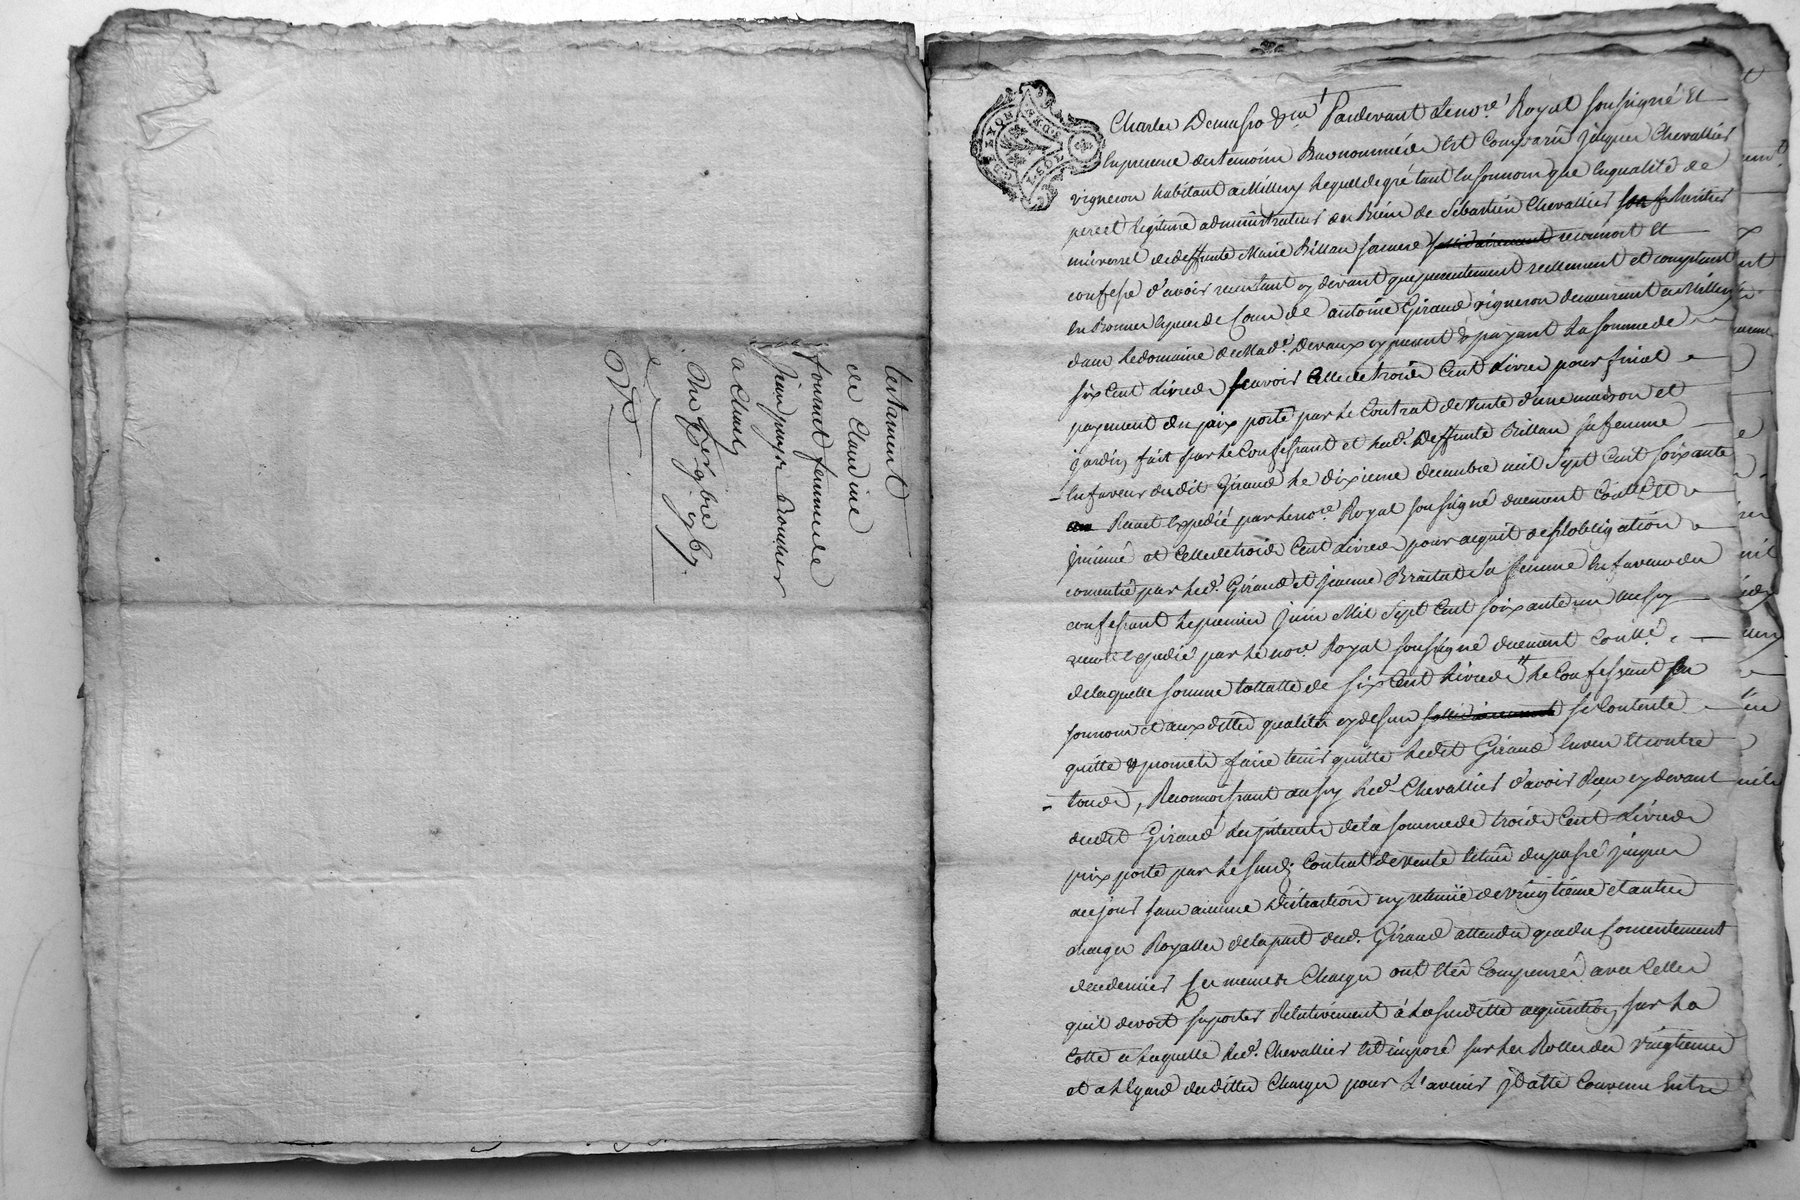 testament
de Claudine
tournut femme de
Jean
a
9bre 1767
GEN LYON
Pardevant le no.re Royal soussigné et
en presence des temoins Bas nommés est comparu Jacques Chevallier
vigneron habitant a Millery lequel de gré tant en son nom que en qualité de
pere et legitime administrateur des Biens de Sebastien Chevallier son fils heritier
universel de deffunte Marie Billan sa mere solidairement reconnoit et
confesse d'avoir reçu tant cy devant que presentement reellement et comptant
en Bonnes especes de Cours de antoine Giraud vigneron demeurant a Millery
dans le domaine de Mad.e Devaux cy present & payant la somme de
six Cent Livres sçavoir Celle de trois Cent Livres pour final
payement du prix porté par le Contrat de Vente d'une maison et
jardin fait par le Confessant et lad. Deffunte Billan sa femme
en faveur dudit Giraud le dixieme decembre mil Sept Cent soixante
Reçu et Expedié par le no.re Royal soussigné duement Conllé et
insinué et Celle de trois Cent Livres pour acquit de l'obligation
consentie par led. Giraud et jeanne sa femme en faveur du
confessant le premier Juin Mil Sept Cent soixante un aussy
reçu et expedié par le no.re Royal soussigné duement Conllé.
de laquelle somme tottalle de six Cent Livres le Confessant en
son nom et aux dittes qualités cy dessus solidairement se Contente
quitte & promet faire tenir quitte ledit Giraud envers et contre
tous, Reconnoissant aussy led. Chevallier d'avoir Reçu cy devant
dudit Giraud les interets de la somme de trois Cent Livres
prix porté par le susd. Contrat de Vente du passé jusques
a ce jour sans aucune Distraction ny retenüe de vingtieme et autres
charges Royalles de la part dud. Giraud attendu que du Consentement
de ce dernier ses memes Charges ont etés Compensés avec Celles
qu'il devoit suporter Relativement à la susditte acquisition sur la
Cotte a laquelle led. Chevallier est imposé sur les Rolles des vingtiemes
et a l'egard des dittes Charges pour L'avenir Convenu Entre